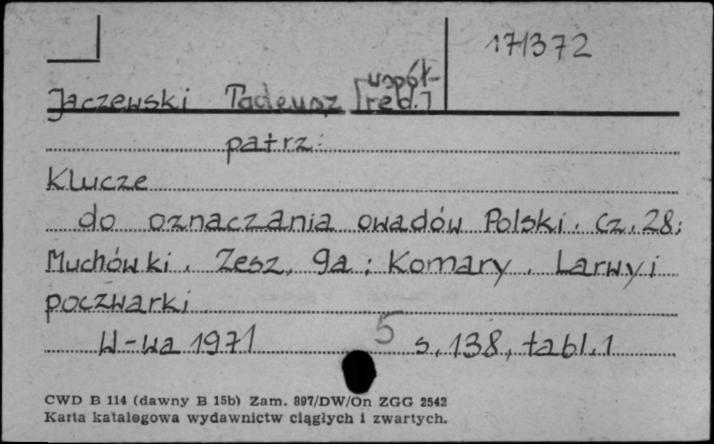 171372
Jaczewski Tadeusz [współ-
red.]
patrz:
Klucze
do oznaczania owadów Polski. Cz. 28:
Muchówki. Zesz. 9a: Komary. Larwy i
poczwarki.
W-wa 1971 5 s. 138, tabl. 1
CWD B 114 (dawny B 15b) Zam. 897/DW/On ZGG 2542
Karta katalogowa wydawnictw ciągłych i zwartych.